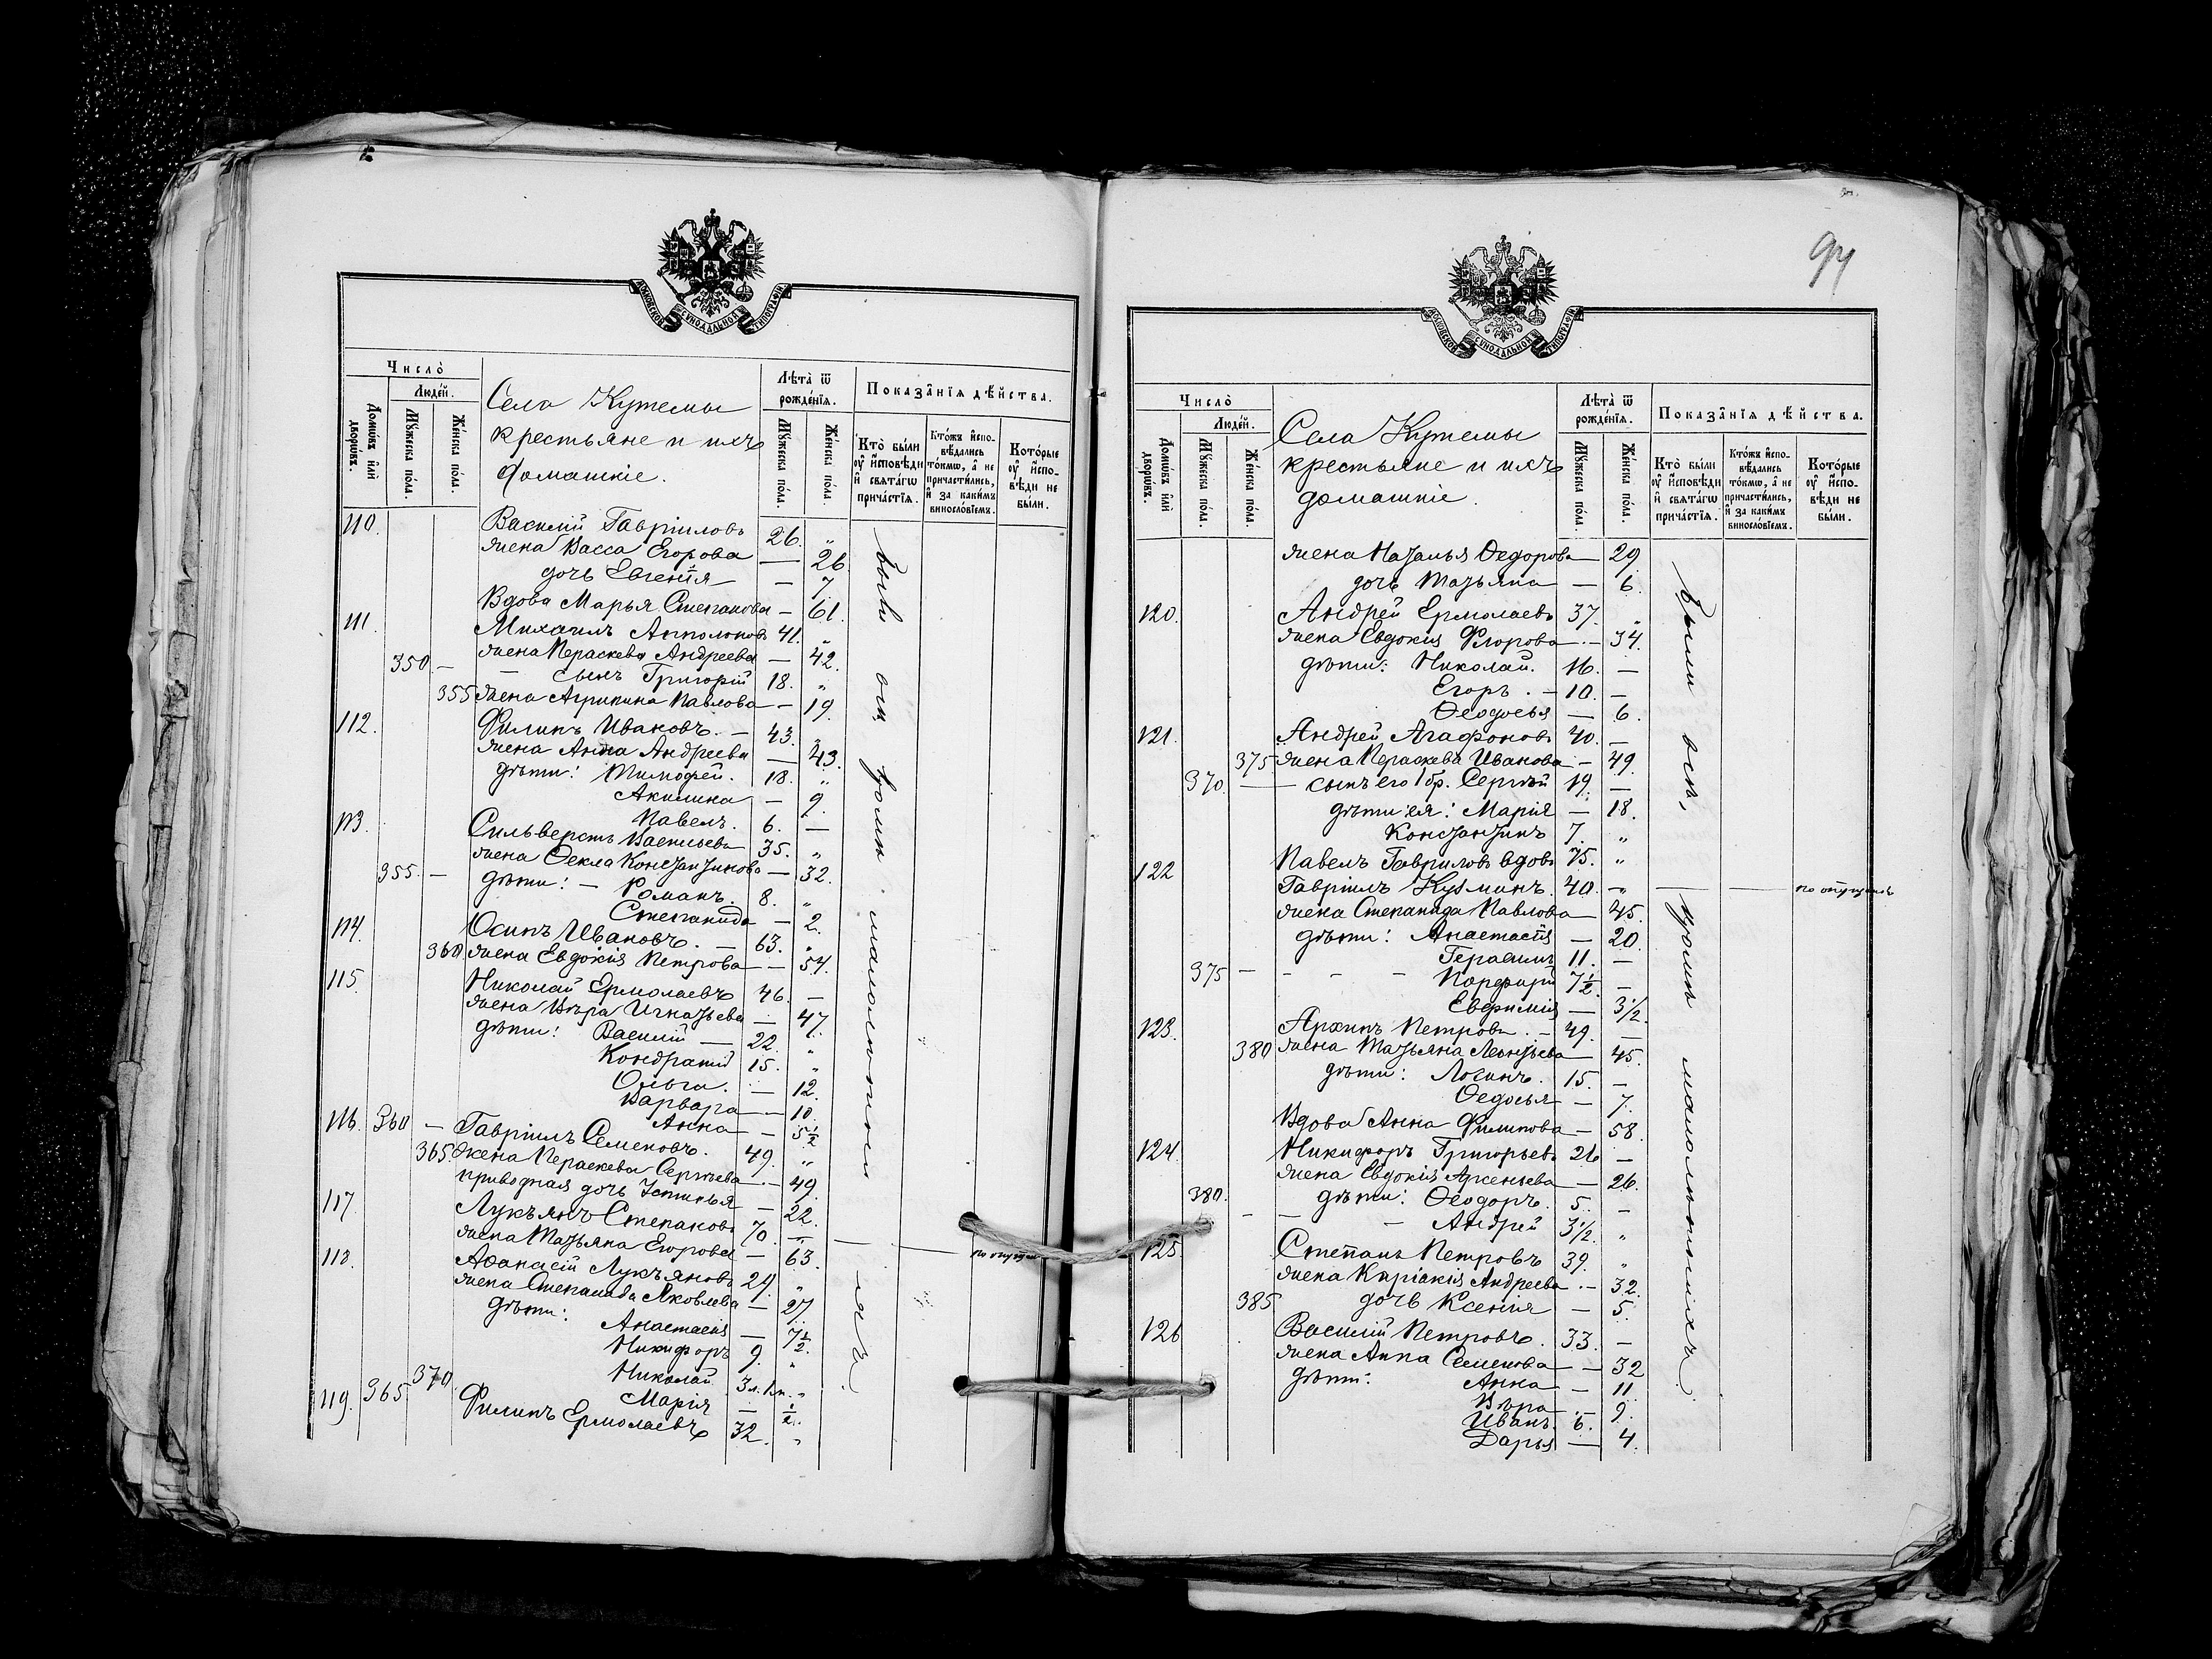 МОСКОВСКОЙ СѴНОДАЛЬНОЙ ТИПОГРАФІИ
Число̀
Людей.
Домѡвъ или дворѡвъ.
Мꙋжеска пола.
Женска пола.
Села Кутемы
крестьяне и ихъ
домашніе.
Лѣта ѿ рожденія.
Мꙋжеска пола.
Женска пола.
Показанія дѣйства.
Кто были оу исповѣди и свѧтагѡ причастія.
Ктожъ исповѣдались токмѡ, а не причастились, и за какимъ винословіемъ.
Которые оу исповѣди не были.
110. Василій Гавріиловъ 26. „
жена Васса Егорова — 26.
дочь Евгенія — 7.
Вдова Марья Степанова — 61.
111. Михаилъ Апполоновъ 41. „
жена Параскева Андреева — 42.
350 — — сынъ Григорій 18. „
355 жена Агрипина Павлова — 19.
112. Филипъ Ивановъ. — 43. „
жена Анна Андреева — 43.
дѣти: Тимофей. 18. „
Акилина — 9.
Павелъ. 6. —
113. Сильверстъ Васильевъ 35. „
жена Ѳекла Константинова — 32.
355. — дѣти: — Романъ. 8. „
Степанида — 2.
114. Осипъ Ивановъ. — 63. „
360 жена Евдокія Петрова — 54.
115. Николай Ермолаевъ 46. —
жена Вѣра Игнатьева — 47.
дѣти: Василій — 22. „
Кондратій 15. „
Ольга. — 12.
Варвара — 10.
Анна — 5½
116. 360 — Гавріилъ Семеновъ. 49. „
365. жена Параскева Сергѣева — 49.
приводная дочь Устинья — 22.
117. Лукьянъ Степановъ 70. —
жена Татьяна Егорова — 63.
по опущен.
118. Аѳанасій Лукъяновъ 29. „
жена Степанида Яковлева — 27.
дѣти: Анастасія — 7½.
Никифоръ 9. „
Николай 3
370. Марія — ½.
119. 365 Филипъ Ермолаевъ 32. „
Были вси, кромѣ малолѣтнихъ.
94
МОСКОВСКОЙ СѴНОДАЛЬНОЙ ТИПОГРАФІИ
Число̀
Людей.
Домѡвъ или дворѡвъ.
Мꙋжеска пола.
Женска пола.
Села Кутемы
крестьяне и ихъ
домашніе.
Лѣта ѿ рожденія.
Мꙋжеска пола.
Женска пола.
Показанія дѣйства.
Кто были оу исповѣди и свѧтагѡ причастія.
Ктожъ исповѣдались токмѡ, а не причастились, и за какимъ винословіемъ.
Которые оу исповѣди не были.
жена Наталья Ѳедорова — 29.
дочь Татьяна — 6.
120. Андрей Ермолаевъ 37. „
жена Евдокія Флорова — 34.
дѣти: Николай. 16. —
Егоръ. — 10. —
Ѳеодосья — 6.
121. Андрей Агафоновъ 40. —
375 жена Параскева Иванова — 49.
370. — — сынъ его 1 бр. Сергѣй 19. —
дѣти ея: Марія — 18.
Константинъ 7. „
122 Павелъ Гавриловъ вдовъ 75. „
Гавріилъ Кузминъ. 40. — по опущенію
жена Степанида Павлова — 45.
дѣти: Анастасія — 20.
Герасимъ 11. —
375 — — — — Порфирій 7½. —
Евфимія — 3½.
123. Архипъ Петровъ. — 49. —
380 жена Татьяна Леонтьева — 45.
дѣти: Логинъ. 15. —
Ѳедосья — 7.
Вдова Анна Филипова — 58.
124. Никифоръ Григорьевъ 26 —
жена Евдокія Арсеньева — 26.
380. дѣти: Ѳеодоръ. 5. —
— — — Андрей 3½. „
125 Степанъ Петровъ 39. „
жена Киріакія Андреева — 32.
385 дочь Ксенія — 5.
126 Василій Петровъ. 33. —
жена Анна Семенова — 32
дѣти: Анна — 11
Вѣра — 9.
Иванъ. 6.
Дарья — 4.
Были всѣ, кромѣ малолѣтнихъ.